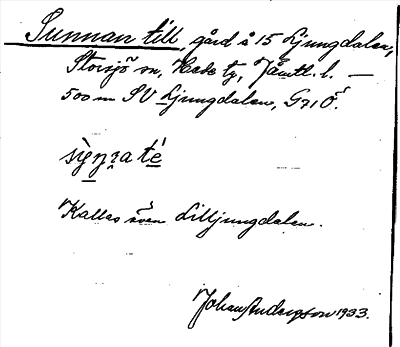 Sunnan till, gård å 15 Ljungdalen,
Storsjö sn, Hede tg, Jämtl. l. —
500 m SV Ljungdalen, G71Ö.
sìŋn̥a té
Kallas även Lilljungdalen.
Johan Andersson 1933.